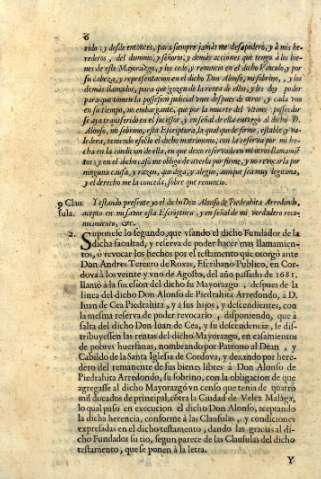 6
rido: y desde entonces, para siempre jamás me desapodero, y à mis he-
rederos, del dominio, y señorío, y demàs acciones que tenga à los bie-
nes de este Mayorazgo, y los cedo, y renuncio en el dicho Vinculo, y por
su cabeza, y representacion en el dicho Don Alonso, mi sobrino, y los
demàs llamados, para que gozen de la renta de ellos; y les doy poder
para que tomen la possesion judicial unos despues de otros, y cada uno
en su tiempo, no embargante, que por la muerte del ultimo posseedor
se aya transferido en el sucessor, y en señal de ella entrego à dicho D.
Alonso, mi sobrino, esta Escriptura, la qual quede firme, estable, y va-
ledera, teniendo efecto el dicho matrimonio, con la reserva por mi he-
cha en la condicion de ella, en que devo reservados en mi otros llamamien-
tos, y en dicho caso me obligo de averla por firme, y no revocarla por
ninguna causa, y razon, que diga, y alegue, aunque sea muy legitima,
y el derecho me la conceda, sobre que renuncio.
9 Clau
sula.
Y estando presente yo el dicho Don Alonso de Piedrahita Arredondo,
acepto en mi favor esta Escriptura, y en señal de mi verdadero reco-
nocimiento, &c.
2. Suponese lo segundo, que vsando el dicho Fundador de la
dicha facultad, y reserva de poder hacer mas llamamien-
tos, ò revocar los hechos por el testamento que otorgò ante
Don Andres Terzero de Roxas, Escribano Publico, en Cor-
dova à los veinte y vno de Agosto, del año passado de 1681.
llamò à la sucession del dicho su Mayorazgo, despues de la
linea del dicho Don Alonso de Piedrahita Arredondo, à D.
Juan de Cea Piedrahita, y a sus hijos, y descendientes, con
la mesma reserva de poder revocarlo, disponiendo, que à
falta del dicho Don Iuan de Cea, y su descendencia, se dis-
tribuyessen las rentas del dicho Mayorazgo, en casamientos
de pobres huerfanas, nombrando por Patrono al Dean, y
Cabildo de la Santa Iglesia de Cordova, y dexando por here-
dero del remanente de sus bienes libres à Don Alonso de
Piedrahita Arredondo, su sobrino, con la obligacion de que
agregasse al dicho Mayorazgo vn censo que tenia de quatro
mil ducados de principal, cõtra la Ciudad de Velez Malaga,
lo qual passò en execucion el dicho Don Alonso, aceptando
la dicha herencia, conforme à las Clausulas, y condiciones
expressadas en el dicho testamento, dando las gracias al di-
cho Fundador su tio, segun parece de las Clausulas del dicho
testamento, que se ponen à la letra.
Y